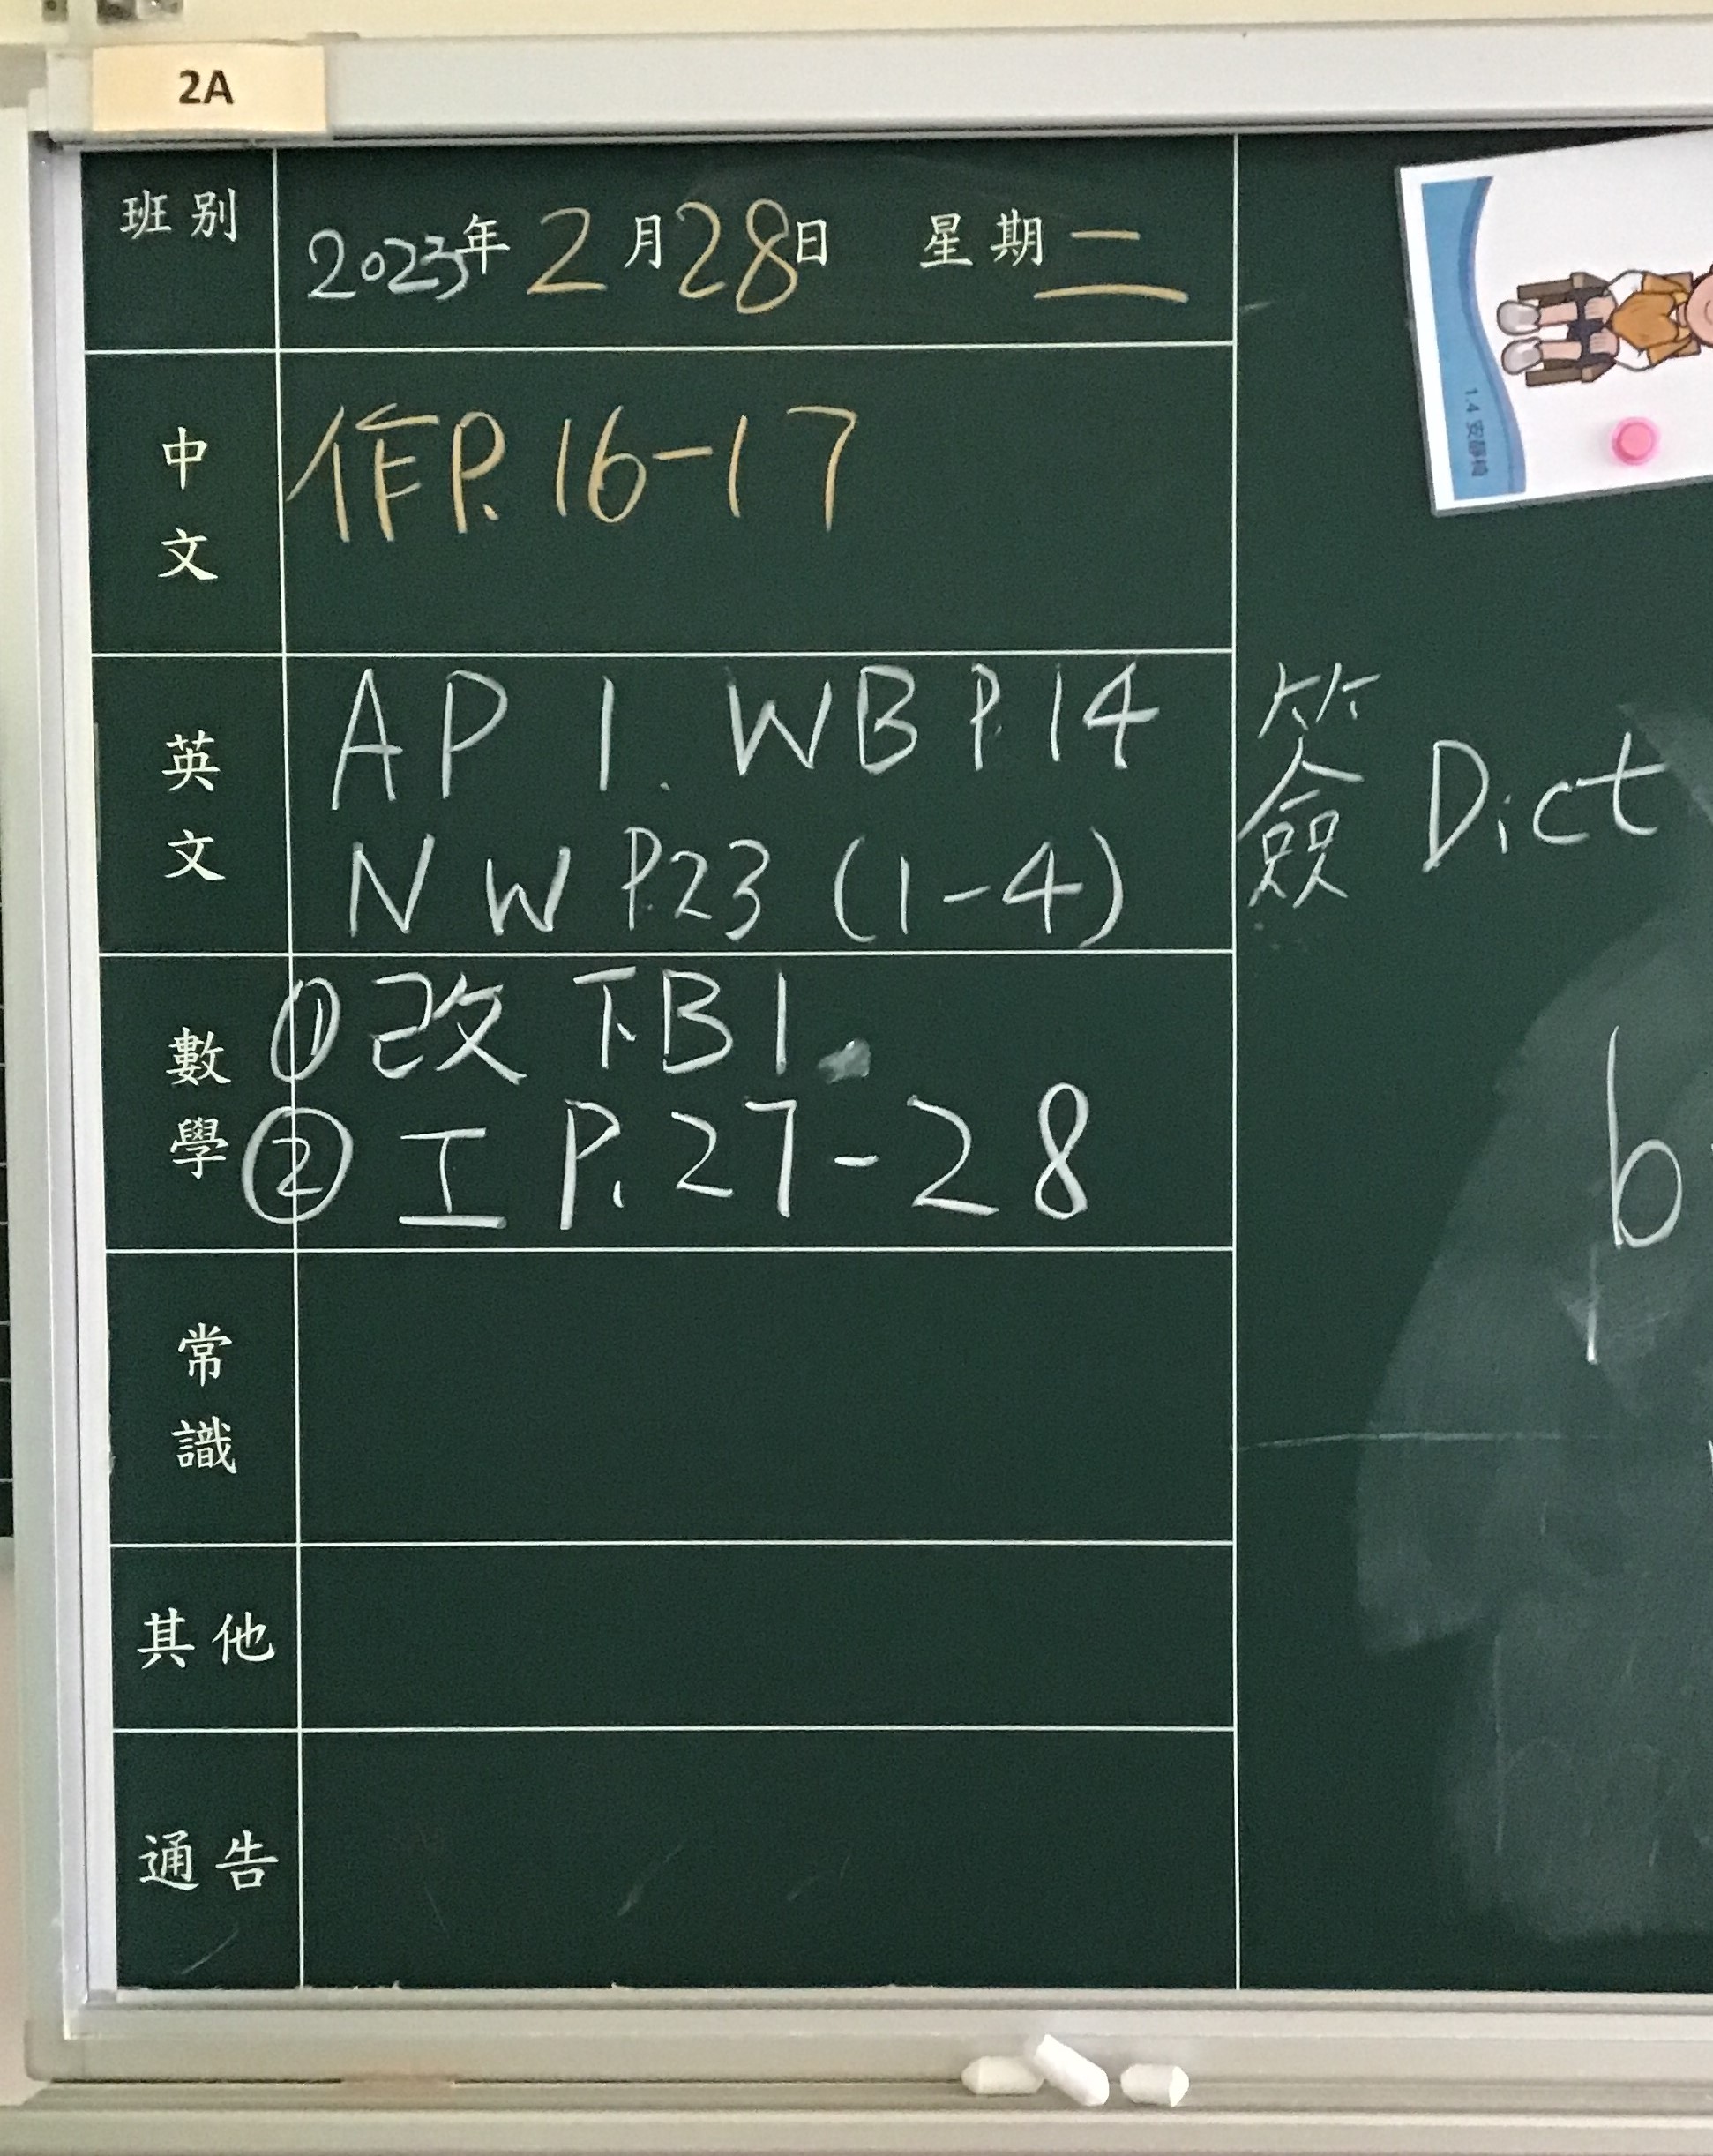 2A
班別 2023年 2月28日 星期二
中文 作P.16-17
英文 AP 1. WB P.14
NW P.23 (1-4)
簽 Dict
數學 ①改 下B1.
② 工 P.27-28
常識
其他
通告
b